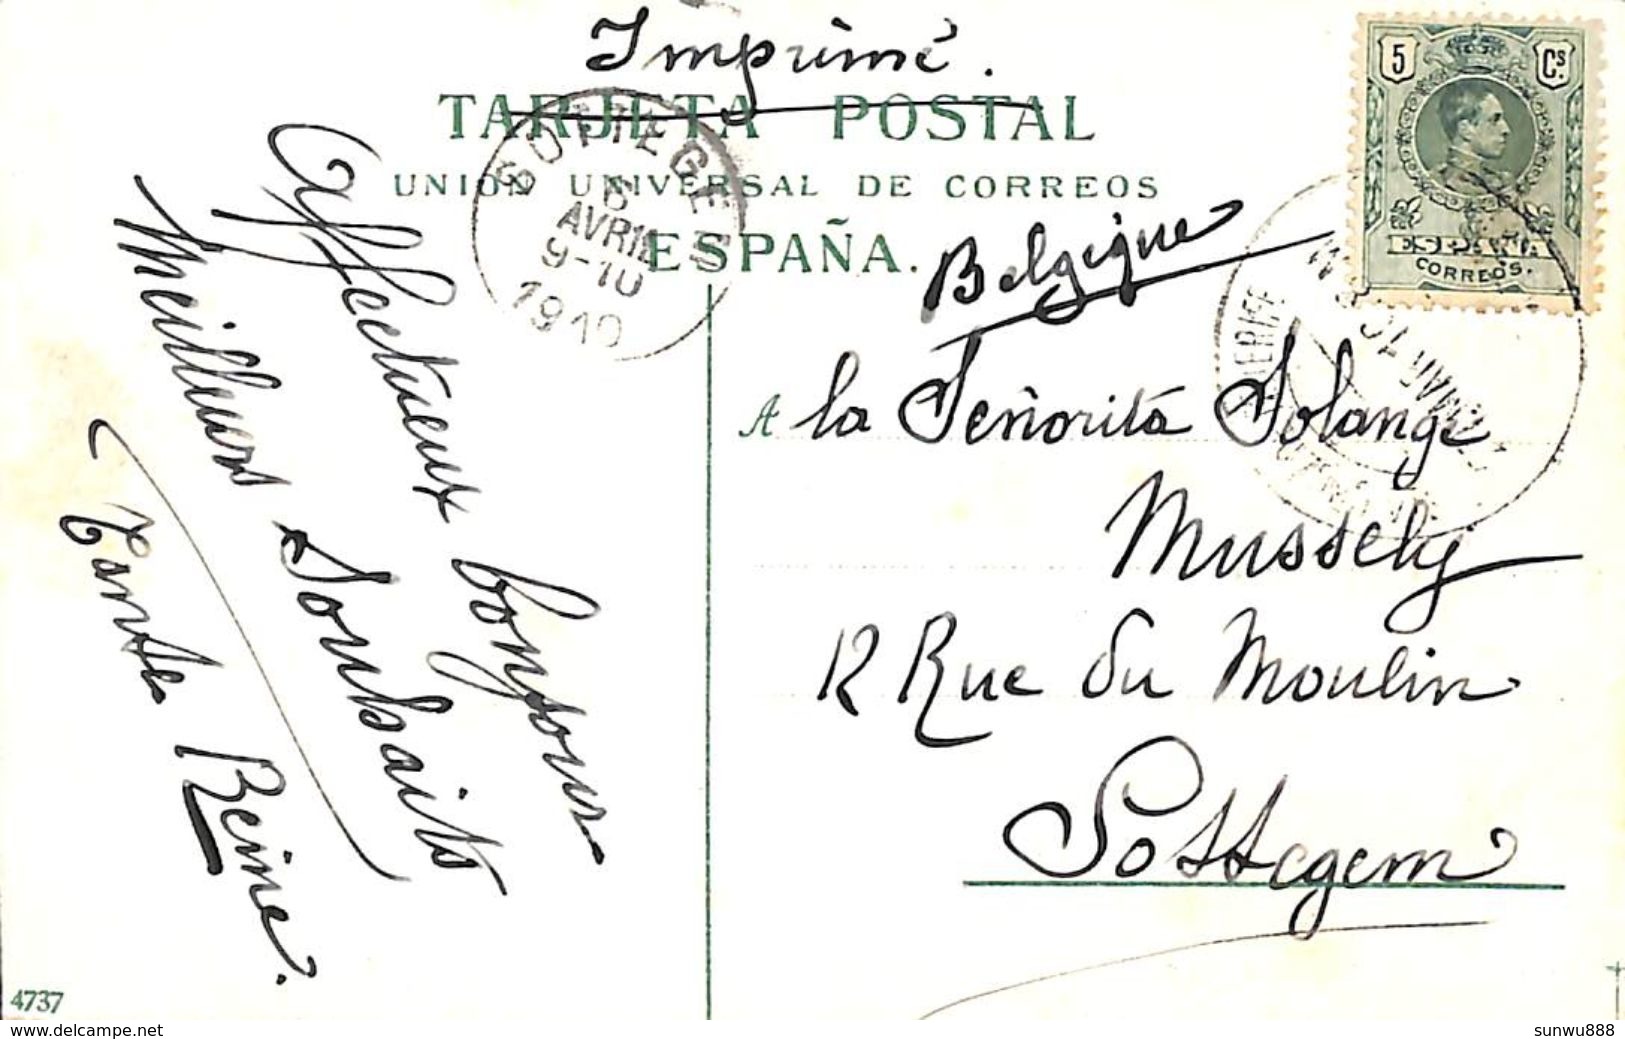 Imprimé.
TARJETA POSTAL
UNION UNIVERSAL DE CORREOS
ESPAÑA.
5 Cs.
ESPAÑA
CORREOS.
AVRIL
9-10
1910
Belgique
A la Señorita Solange
Mussely
12 Rue du Moulin
Sottegem
Affectueux bonjours
Meilleurs Souhaits
Tante Reine.
4737
www.delcampe.net
sunwu888